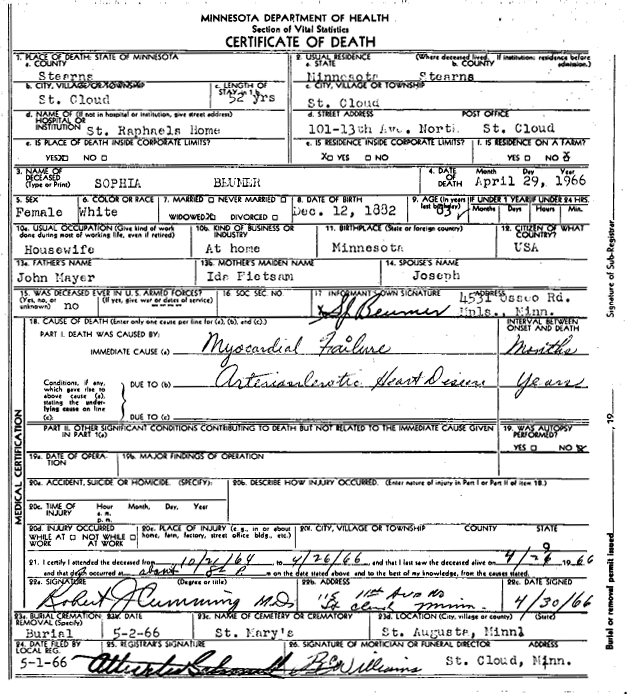 MINNESOTA DEPARTMENT OF HEALTH
Section of Vital Statistics
CERTIFICATE OF DEATH
1. PLACE OF DEATH: STATE OF MINNESOTA
a. COUNTY
Stearns
2. USUAL RESIDENCE (Where deceased lived. If institution: residence before admission.)
a. STATE b. COUNTY
Minnesota Stearns
b. CITY, VILLAGE OR TOWNSHIP
St. Cloud
c. LENGTH OF STAY in 1b
52 yrs
c. CITY, VILLAGE OR TOWNSHIP
St. Cloud
d. NAME OF (If not in hospital or institution, give street address)
HOSPITAL OR
INSTITUTION St. Raphaels Home
d. STREET ADDRESS POST OFFICE
101-13th Ave. North St. Cloud
e. IS PLACE OF DEATH INSIDE CORPORATE LIMITS?
YES X NO
e. IS RESIDENCE INSIDE CORPORATE LIMITS?
X YES NO
f. IS RESIDENCE ON A FARM?
YES NO X
3. NAME OF DECEASED
(Type or Print) SOPHIA BEUMER
4. DATE OF DEATH Month Day Year
April 29, 1966
5. SEX
Female
6. COLOR OR RACE
White
7. MARRIED NEVER MARRIED
WIDOWED X DIVORCED
8. DATE OF BIRTH
Dec. 12, 1882
9. AGE (In years last birthday)
83
IF UNDER 1 YEAR IF UNDER 24 HRS.
Months Days Hours Min.
10a. USUAL OCCUPATION (Give kind of work done during most of working life, even if retired)
Housewife
10b. KIND OF BUSINESS OR INDUSTRY
At home
11. BIRTHPLACE (State or foreign country)
Minnesota
12. CITIZEN OF WHAT COUNTRY?
USA
13a. FATHER'S NAME
John Mayer
13b. MOTHER'S MAIDEN NAME
Ida Pietsam
14. SPOUSE'S NAME
Joseph
15. WAS DECEASED EVER IN U.S. ARMED FORCES?
(Yes, no, or unknown) no (If yes, give war or dates of service)
16. SOC SEC NO.
17. INFORMANT'S OWN SIGNATURE ADDRESS
Beumer 4531 Osseo Rd.
Mpls., Minn.
18. CAUSE OF DEATH (Enter only one cause per line for (a), (b), and (c).)
INTERVAL BETWEEN ONSET AND DEATH
PART I. DEATH WAS CAUSED BY:
IMMEDIATE CAUSE (a) Myocardial Failure Months
Conditions, if any, which gave rise to above cause (a), stating the underlying cause on line (c).
DUE TO (b) Arteriosclerotic Heart Disease Years
DUE TO (c)
PART II. OTHER SIGNIFICANT CONDITIONS CONTRIBUTING TO DEATH BUT NOT RELATED TO THE IMMEDIATE CAUSE GIVEN IN PART 1(a)
19. WAS AUTOPSY PERFORMED?
YES NO X
19a. DATE OF OPERATION
19b. MAJOR FINDINGS OF OPERATION
20a. ACCIDENT, SUICIDE OR HOMICIDE. (SPECIFY):
20b. DESCRIBE HOW INJURY OCCURRED. (Enter nature of injury in Part I or Part II of item 18.)
20c. TIME OF INJURY Hour Month, Day, Year
a. m.
p. m.
20d. INJURY OCCURRED
WHILE AT WORK NOT WHILE AT WORK
20e. PLACE OF INJURY (e.g., in or about home, farm, factory, street office bldg., etc.)
20f. CITY, VILLAGE OR TOWNSHIP COUNTY STATE
21. I certify I attended the deceased from 10/21/64 to 4/26/66, and that I last saw the deceased alive on 4/26 1966
and that death occurred at about m on the date stated above and to the best of my knowledge, from the causes stated.
22a. SIGNATURE (Degree or title)
Robert J Cumming M.D.
22b. ADDRESS
St Cloud Minn
22c. DATE SIGNED
4/30/66
23a. BURIAL CREMATION REMOVAL (Specify)
Burial
23b. DATE
5-2-66
23c. NAME OF CEMETERY OR CREMATORY
St. Mary's
23d. LOCATION (City, village or county) (State)
St. Augusta, Minnl
24. DATE FILED BY LOCAL REG.
5-1-66
25. REGISTRAR'S SIGNATURE
26. SIGNATURE OF MORTICIAN OR FUNERAL DIRECTOR ADDRESS
Williams St. Cloud, Minn.
MEDICAL CERTIFICATION
Signature of Sub-Registrar
, 19
Burial or removal permit issued